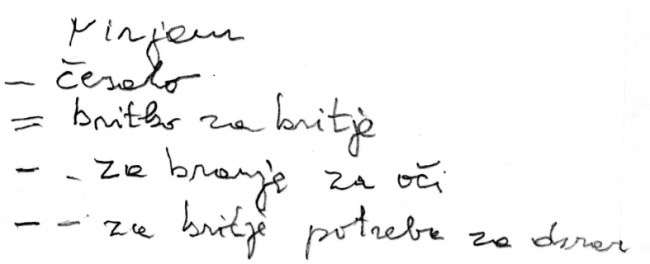 Mirjam
- česalo
= britko za britje
- - za branje za oči
- - za britje potreba za